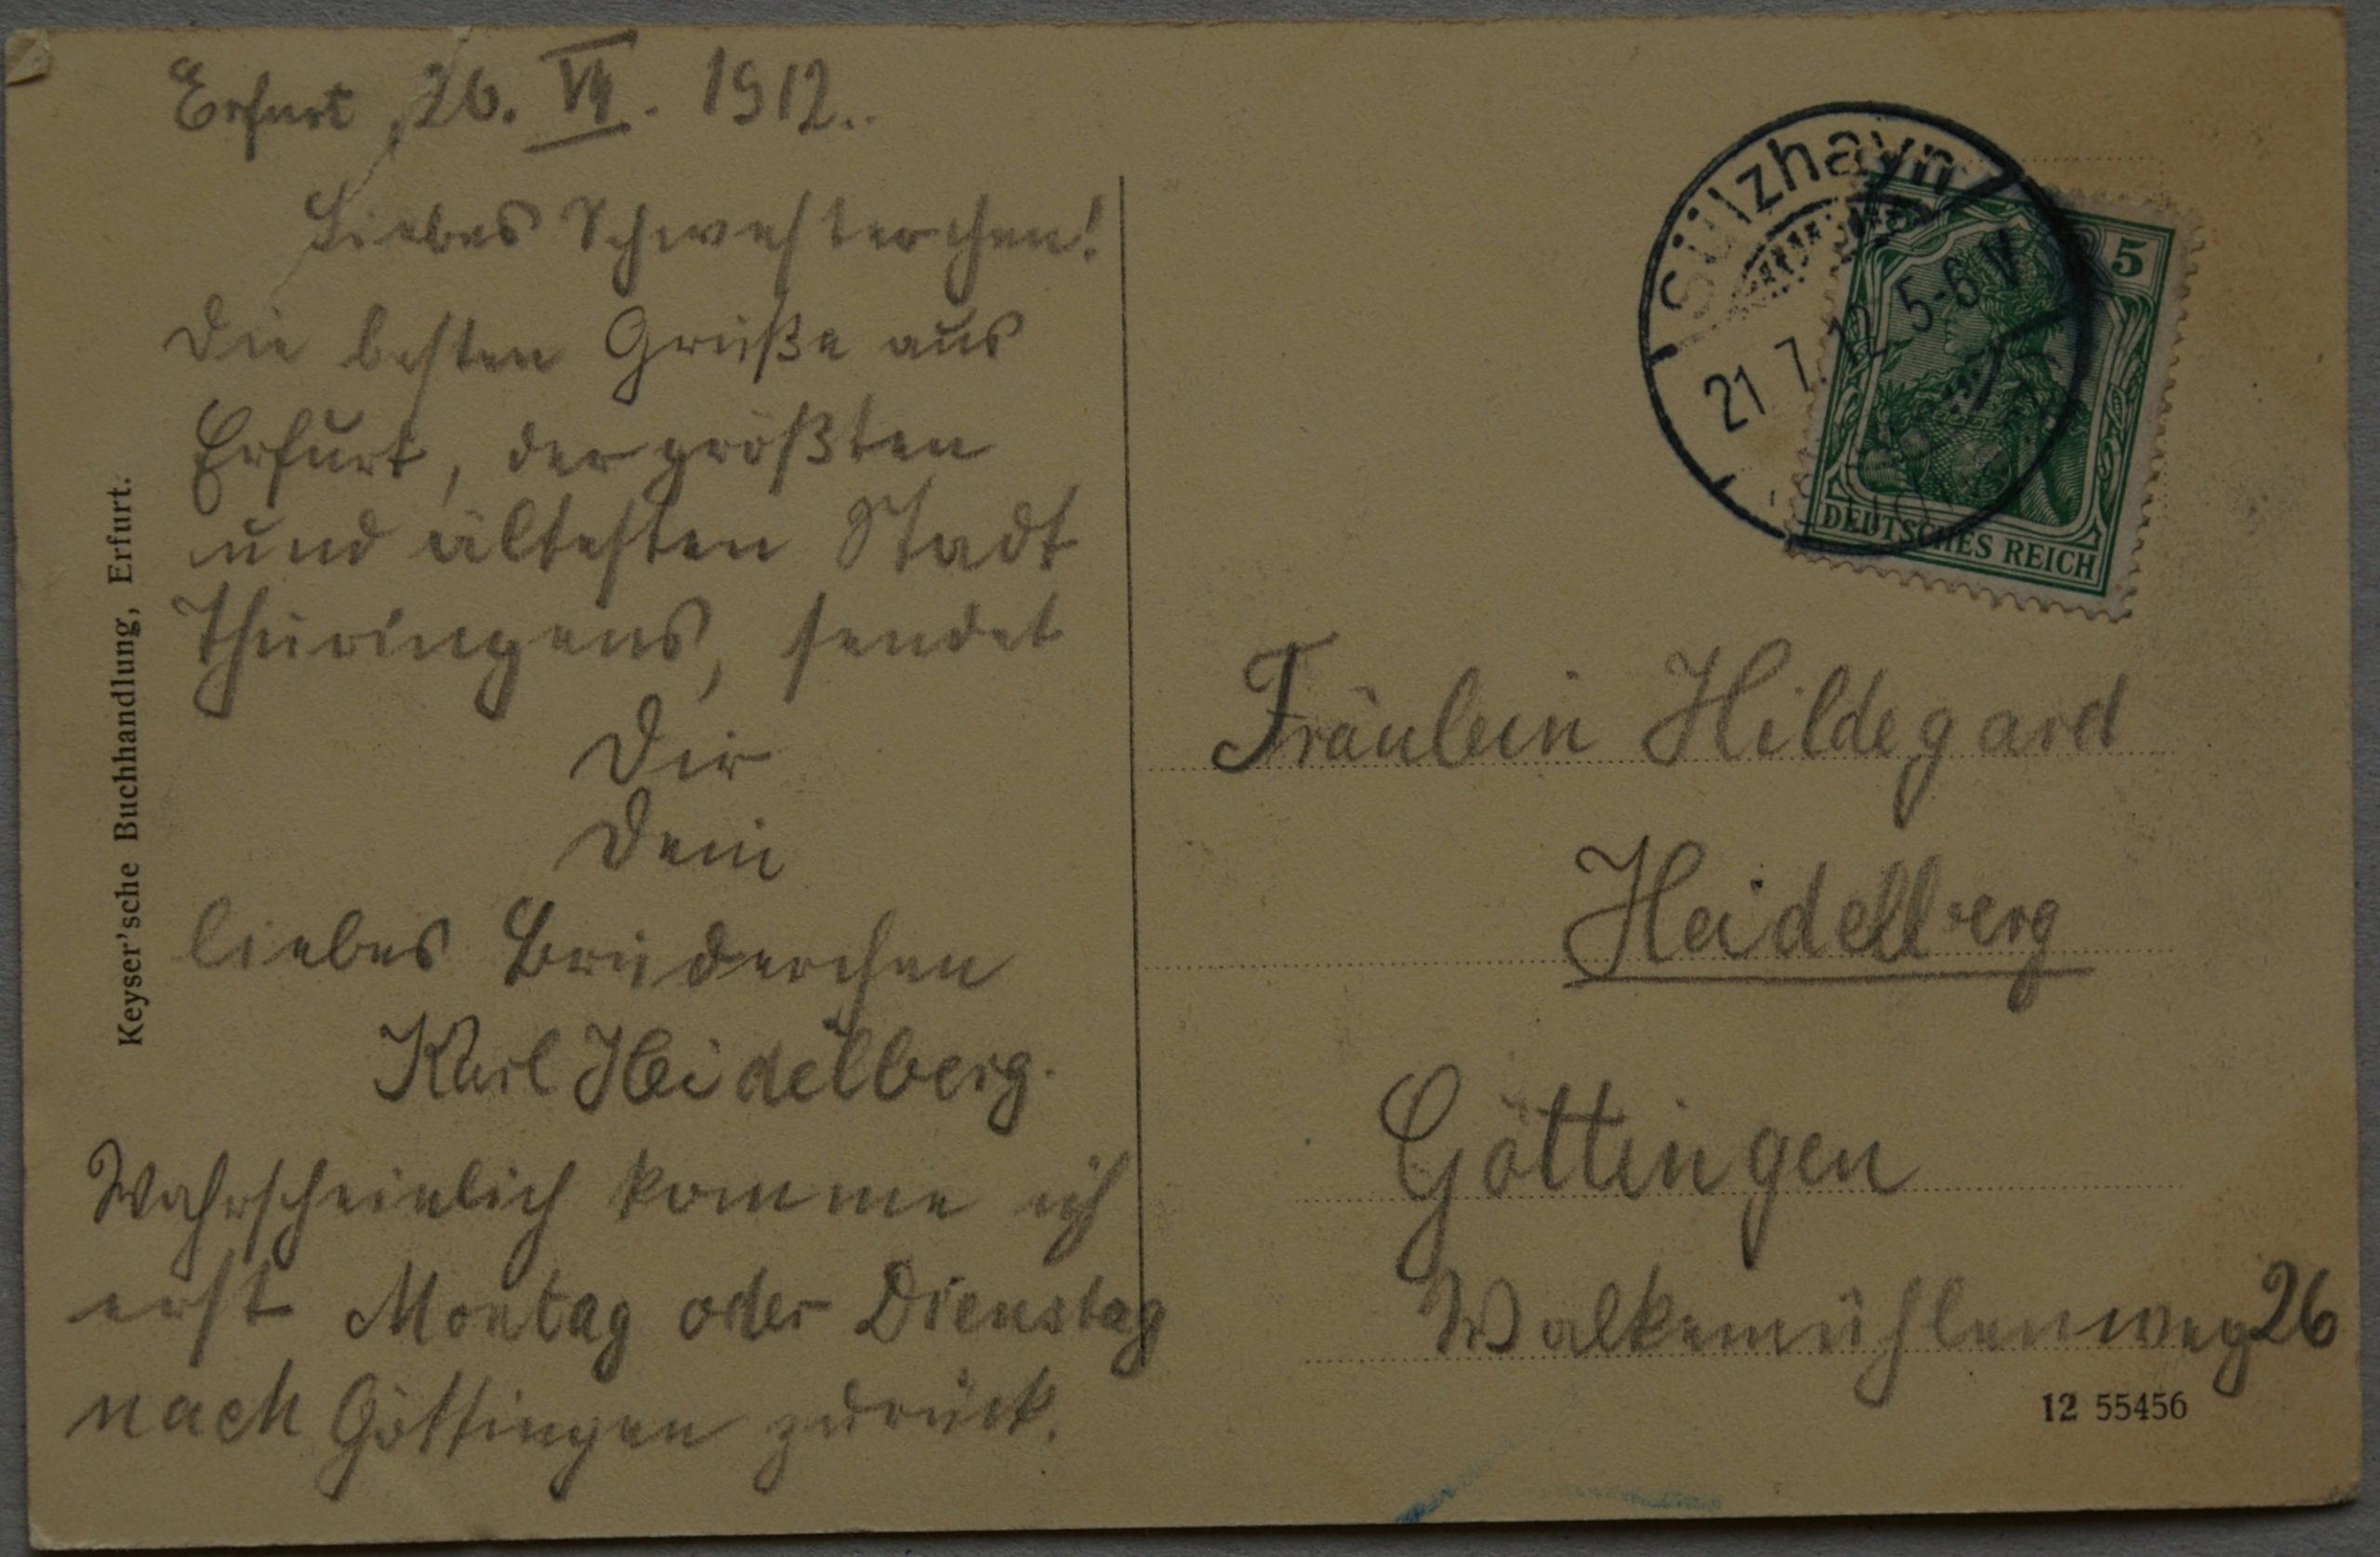 Erfurt, 20. VII. 1912..
Liebes Schwesterchen!
Die besten Grüße aus
Erfurt, der größten
und ältesten Stadt
Thüringens, sendet
Dir
Dein
liebes Brüderchen
Karl Heidelberg.
Wahrscheinlich komme ich
erst Montag oder Dienstag
nach Göttingen zurück.
Keyser'sche Buchhandlung, Erfurt.
Sülzhayn
21 7. 12. 5-6 V
5
DEUTSCHES REICH
Fräulein Hildegard
Heidelberg
Göttingen
Walkemühlenweg 26
12 55456